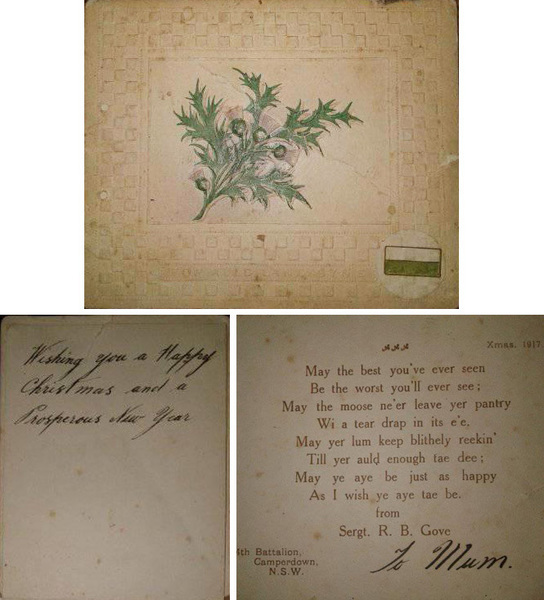 Wishing you a Happy
Christmas and a
Prosperous New Year
Xmas, 1917
May the best you've ever seen
Be the worst you'll ever see;
May the moose ne'er leave yer pantry
Wi a tear drap in its e'e,
May yer lum keep blithely reekin'
Till yer auld enough tae dee;
May ye aye be just as happy
As I wish ye aye tae be.
from
Sergt. R. B. Gove
4th Battalion,
Camperdown,
N.S.W.
To Mum.